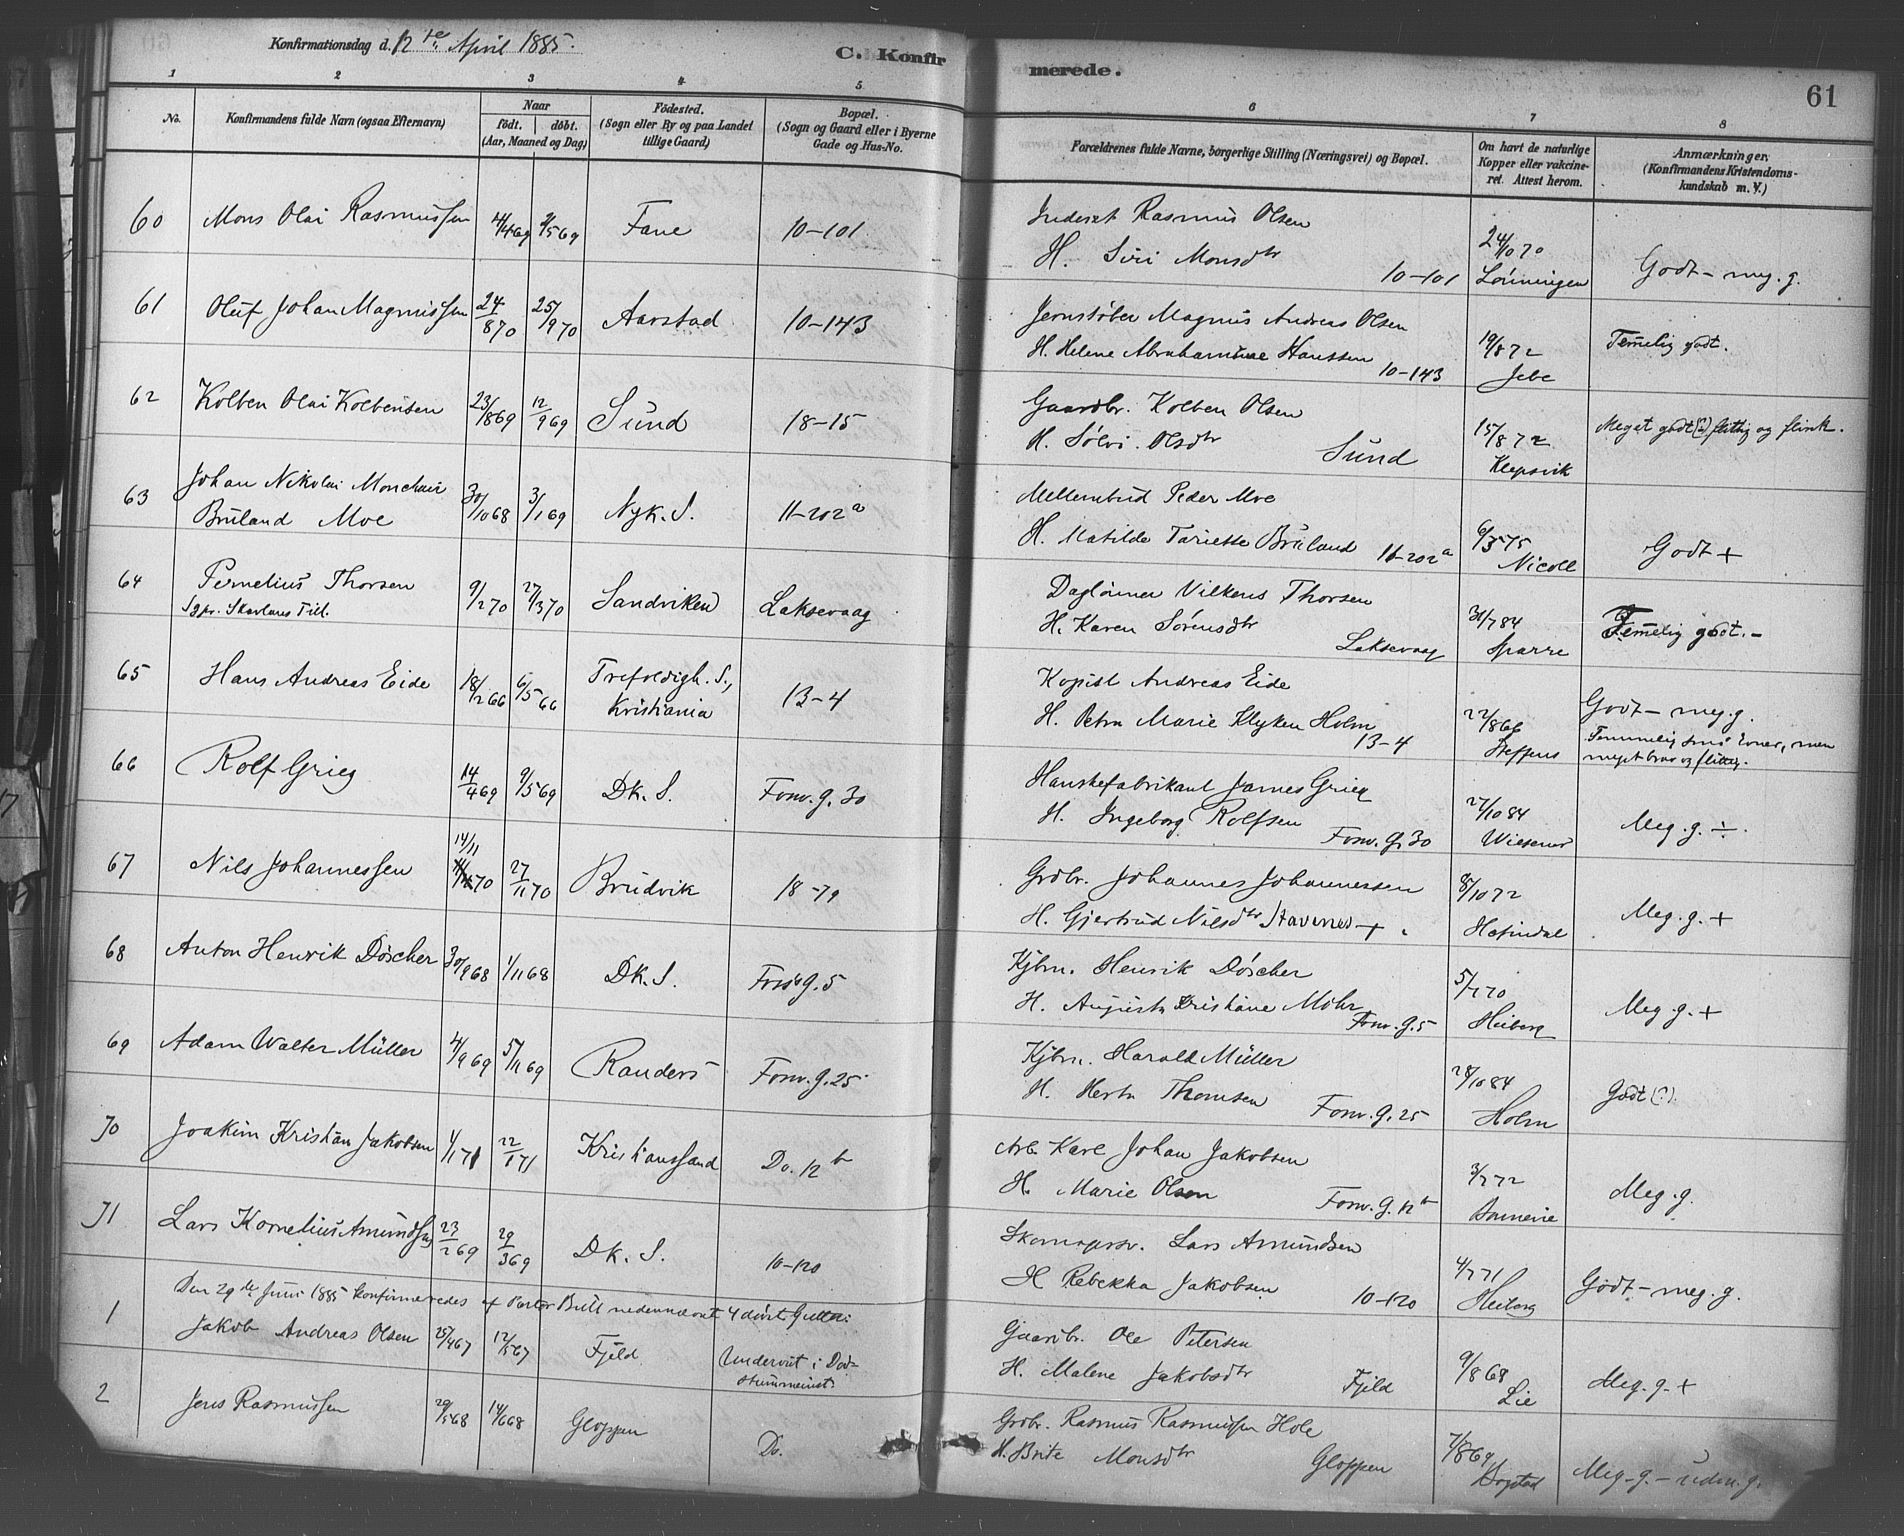 Konfirmationsdag d. 12te April 1885.
C. Konfirmerede.
61
1 2 3 4 5 6 7 8
No.
Konfirmandens fulde Navn (ogsaa Efternavn)
Naar
födt. döbt.
(Aar, Maaned og Dag)
Födested.
(Sogn eller By og paa Landet
tillige Gaard)
Bopæl.
(Sogn og Gaard eller i Byerne
Gade og Hus-No.
Forældrenes fulde Navne, borgerlige Stilling (Næringsvei) og Bopæl.
Om havt de naturlige
Kopper eller vakcineret.
Attest herom.
Anmærkninger.
(Konfirmandens Kristendomskundskab
m. V.)
60 Mons Olai Rasmussen 4/4 69 9/5 69 Fane 10-101 Inderst Rasmus Olsen
H. Siri Monsdtr 10-101 24/10 70 Lönningen Godt - meg. g.
61 Oluf Johan Magnussen 24/8 70 25/9 70 Aarstad 10-143 Jernstøber Magnus Andreas Olsen
H. Helene Abrahamine Hanssen 10-143 19/8 72 Jebe Temelig godt.
62 Kolben Olai Kolbensen 23/8 69 12/9 69 Sund 18-15 Gaardbr. Kolben Olsen
H. Sølvi Olsdtr Sund 15/8 72 Klepsvik Meget godt (?) flittig og flink.
63 Johan Nikolai Monclair
Bruland Moe 30/10 68 3/1 69 Nyk. S. 11-202a Mellembud Peder Moe
H. Matilde Tariette Bruland 11-202a 6/3 75 Nicoll Godt +
64 Pernelius Thorsen 9/2 70 27/3 70 Sandviken Laksevaag Daglönner Vilkens Thorsen
Sgpr. Skavlans Till.
H. Karen Sörensdtr Laksevaag 31/7 84 Sparre Temelig godt. -
65 Hans Andreas Eide 18/2 66 6/5 66 Trefoldigh. S.,
Kristiania 13-4 Kopist Andreas Eide
H. Petra Marie Klyken Holm 13-4 22/8 66 Steffens Godt - meg. g.
Temmelig små Evner, men
meget brav og flittig.
66 Rolf Grieg 14/4 69 9/5 69 Dk. S. Fonv. g. 30 Hanskefabrikant James Grieg
H. Ingeborg Rolfsen Fonv. G. 30 27/10 84 Wiesener Meg. g. ÷.
67 Nils Johannessen 14/11 70 27/11 70 Brudvik 18-79 Grdbr. Johannes Johannessen
H. Gjertrud Nilsdtr Stavenes + 8/10 72 Meg. g. +
68 Anton Henrik Döscher 30/9 68 1/11 68 Dk. S. Fonv. g. 5 Kjbm. Henrik Döscher
H. Augusta Kristiane Mohr Fonv. g. 5 5/7 70 Heiberg Meg. g. +
69 Adam Walter Müller 4/9 69 5/11 69 Randers Fonv. g. 25 Kjbm. Harald Müller
H. Herta Thomsen Fonv. G. 25 28/10 84 Holm Godt (?)
70 Joakim Kristian Jakobsen 1/1 71 22/1 71 Kristianssand Do. 12b Arb. Karl Johan Jakobsen
H. Marie Olsen Fonv. G. 12b 3/7 72 Meg. g.
71 Lars Kornelius Amundsen 23/2 69 29/3 69 Dk. S. 10-120 Skomagersv. Lars Amundsen
H Rebekka Jakobsen 10-120 4/7 71 Heiberg Godt - meg. g.
Den 29de Juni 1885 konfirmeredes af Pastor Bull nedennævnt 4 døvst. Gutter:
1 Jakob Andreas Olsen 25/4 67 12/5 67 Fjeld Undervist i Døvstummeinst.
Gaardbr. Ole Petersen
H. Malene Jakobsdtr Fjeld 9/8 68 Lie Meg. g. +
2 Jens Rasmussen 29/5 68 14/6 68 Gloppen Do. Grdbr. Rasmus Rasmussen Hole
H. Brite Monsdtr Gloppen 7/8 69 Meg. g. - udm. g.